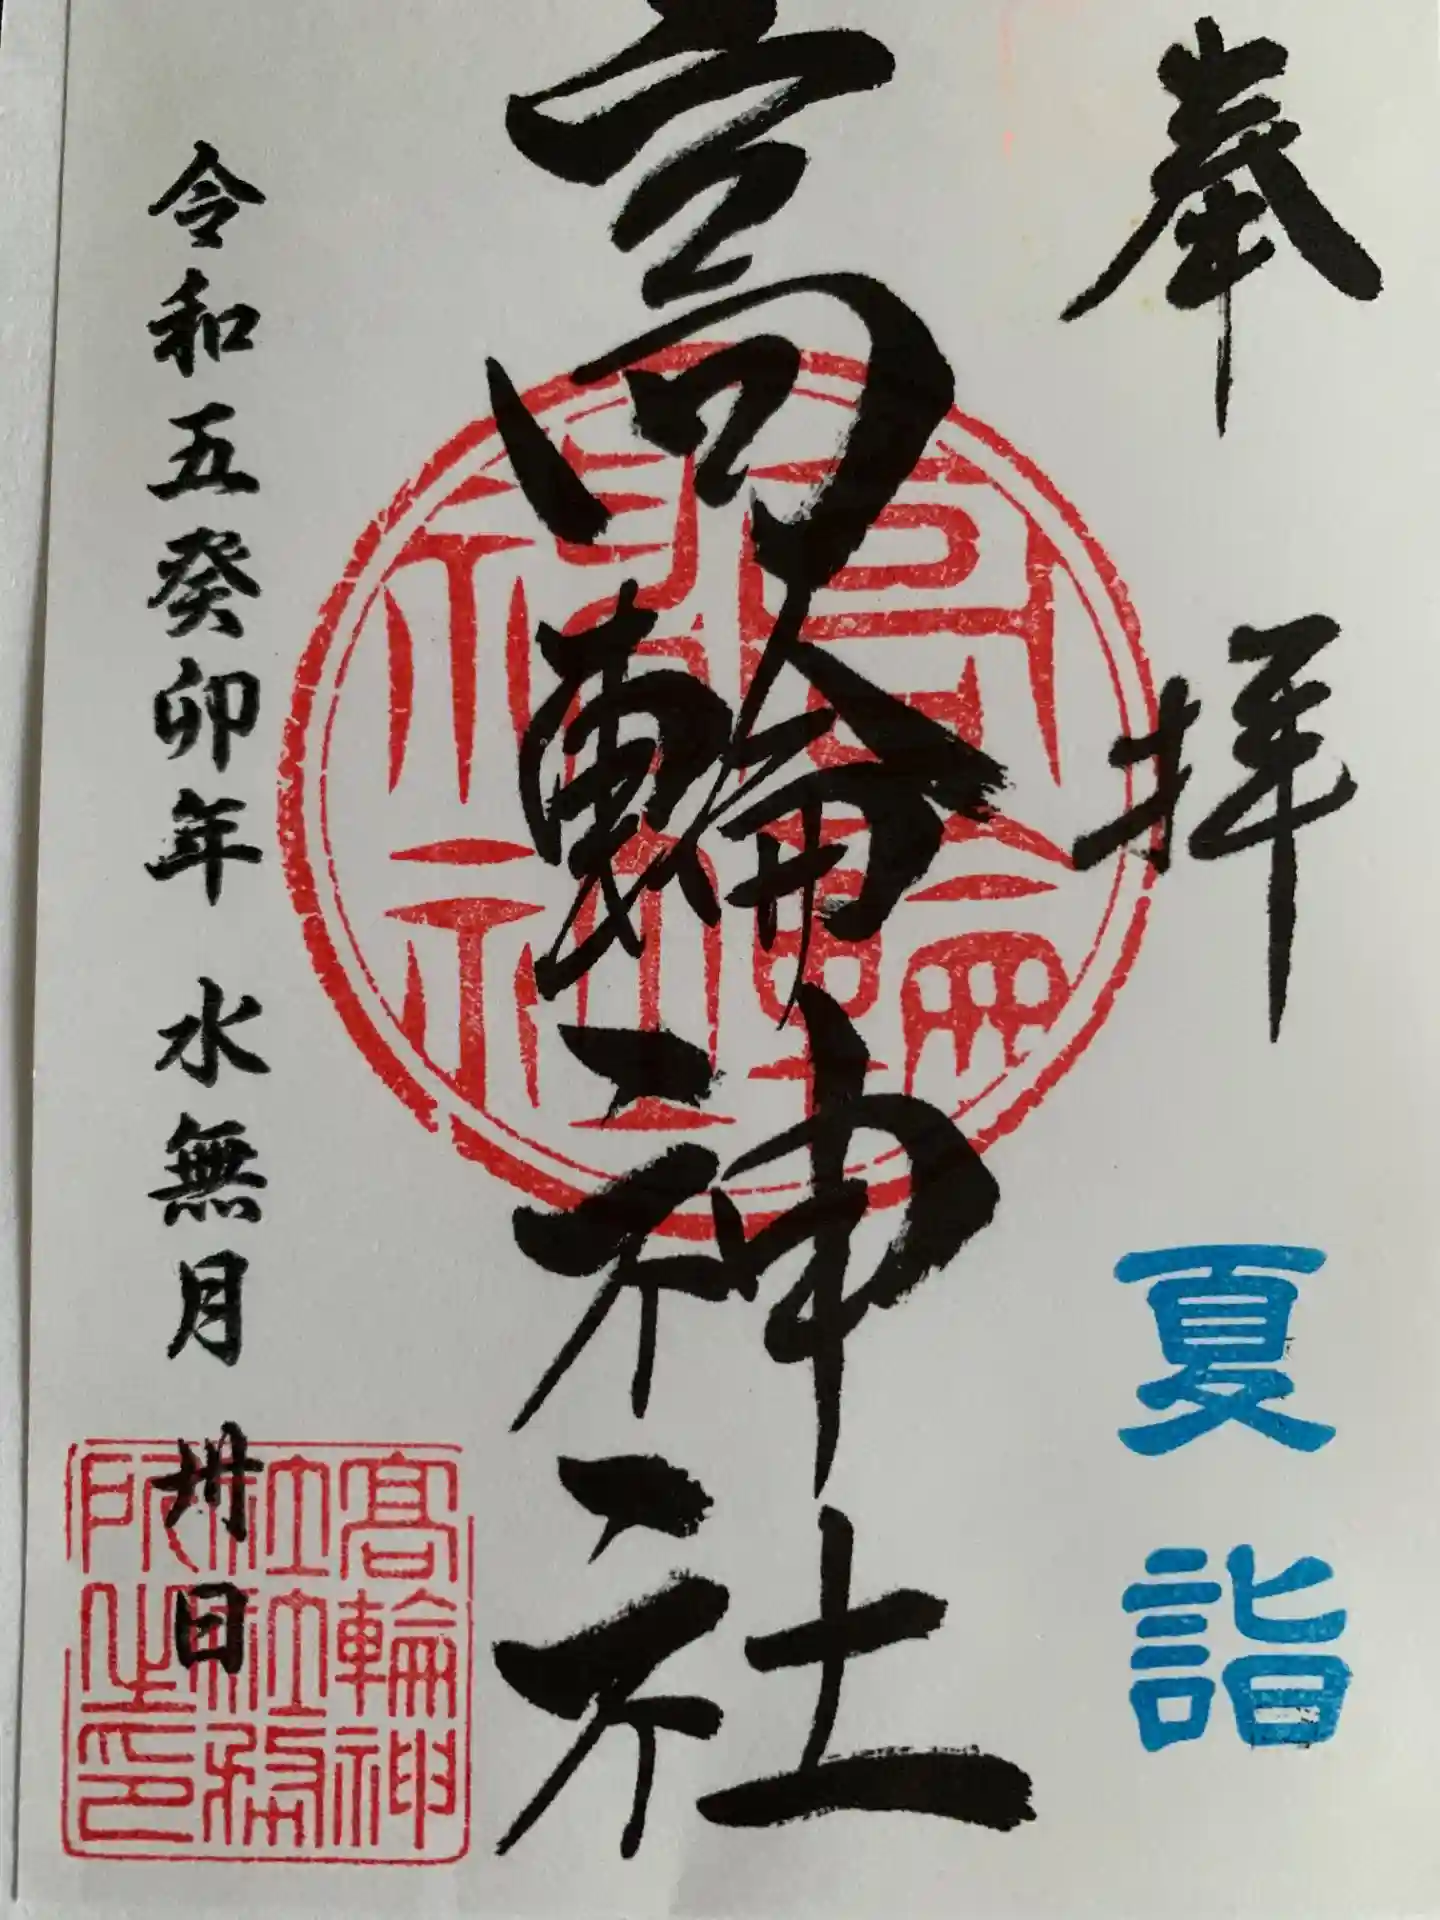 奉拝
夏詣
高輪神社
高輪神社
令和五癸卯年 水無月 卅日
高輪神
社社務
所之印